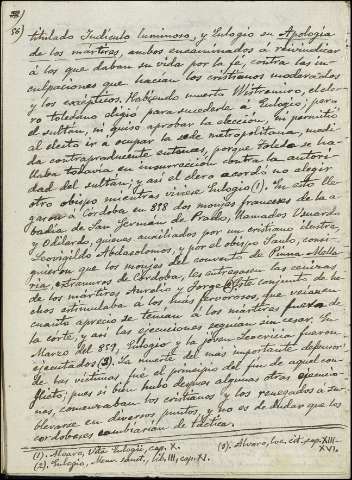 56)
titulado Indículo luminoso, y Eulogio su Apología
de los mártires, ambos encaminados á reivindicar
á los que daban su vida por la fe, contra las in-
culpaciones que hacían los cristianos moderados
y los escépticos. Habiendo muerto Wistremiro, el cle-
ro toledano eligió para sucederle á Eulogio; pero
el sultán, ni quiso aprobar la elección, ni permitió
al electo ir á ocupar la sede metropolitana, medi-
da contraproducente entonces, porque Toledo se ha-
llaba todavía en insurrección contra la autori-
dad del sultán; y así el clero acordó no elegir
otro obispo mientras viviese Eulogio (1). En esto lle-
garon á Córdoba en 858 dos monjes franceses de la a-
badía de San Germán de Prades, llamados Usuardo
y Odilardo, quienes auxiliados por un cristiano ilustre,
Leovigildo Abdasolomos, y por el obispo Saulo, consi-
guieron que los monjes del convento de Pinna Mella-
ria, extramuros de Córdoba, les entregasen las cenizas
de los mártires Aurelio y Jorge. Este conjunto de he-
chos estimulaba á los más fervorosos, que veían en
cuanto aprecio se tenían á los mártires fuera de
la corte, y así las ejecuciones seguían sin cesar. En
Marzo del 859, Eulogio y la joven Leocricia fueron
ejecutados (2). La muerte del más importante defensor
de las víctimas, fué el principio del fin de aquel con-
flicto; pues si bien hubo después algunas otras ejecucio-
nes, comenzaban los cristianos y los renegados á su-
blevarse en diversos puntos, y no es de dudar que los
cordobeses cambiaron de táctica.
(1). Alvaro, Vita Eulogii, cap. X.
(2). Eulogio, Mem. sanct., lib. III, cap. XI.
(3). Alvaro, loc. cit. cap. XIII-
XVI.